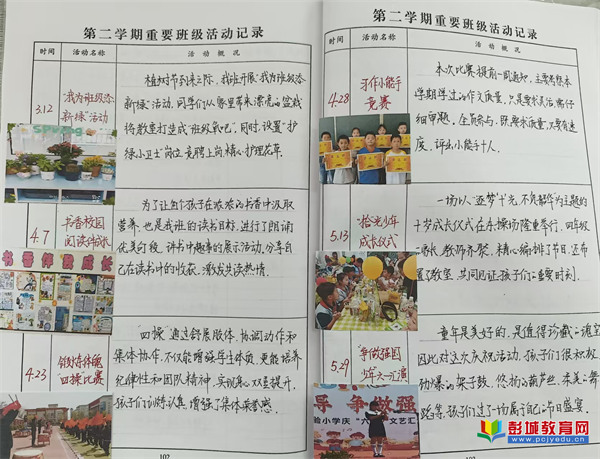 第二学期重要班级活动记录
时间 活动名称 活动概况
3.12
"我为班级添
新绿"活动
植树节到来之际,我班开展"我为班级添
新绿"活动,同学们从家里带来漂亮的盆栽
将教室打造成"班级氧吧"。同时,设置"护
绿小卫士"岗位,竞聘上岗,精心护理花草。
4.7
书香校园
阅读伴成长
为了让每个孩子在浓浓的书香中汲取
营养,也是我班的读书目标,进行了朗诵
优美句段,讲书中趣事的展示活动,分享自
己在读书中的收获,激发失读热情.
书香伴我成长
4.23
锻炼体魄
四操比赛
"四操"通过舒展肢体,协调动作和
集体协作,不仅能增强学生体质,更能培养
纪律性和团队精神,实现身心双重提升,
孩子们训练认真,增强了集体荣誉感.
102
第二学期重要班级活动记录
时间 活动名称 活动概况
4.28
习作小能手
竞赛
本次比赛提前一周通知,主要考察本
学期学过的作文质量,只是要求灵活需仔
细审题。全员参与,既要求质量,又要有速
度,评出小能手十人.
5.13
"拾光少年
成长仪式"
一场以"逐梦'十'光,不负韶华"为主题的
十岁成长仪式在本操场隆重举行,四年级
家长、教师齐聚,精心编排了节目,还布
置了教室,共同见证孩子们的重要时刻.
5.29
"争做强国
少年"六一汇演
童年是美好的,是值得珍藏的瑰宝
因此对这次庆祝活动,孩子们很积极,
劲爆的架子鼓,悠扬的葫芦丝,柔美的舞
蹈等,孩子们过了一场属于自己的节日盛宴.
导 争做强
验小学庆"六 文艺汇
彭城教育网
www.pcjyedu.cn